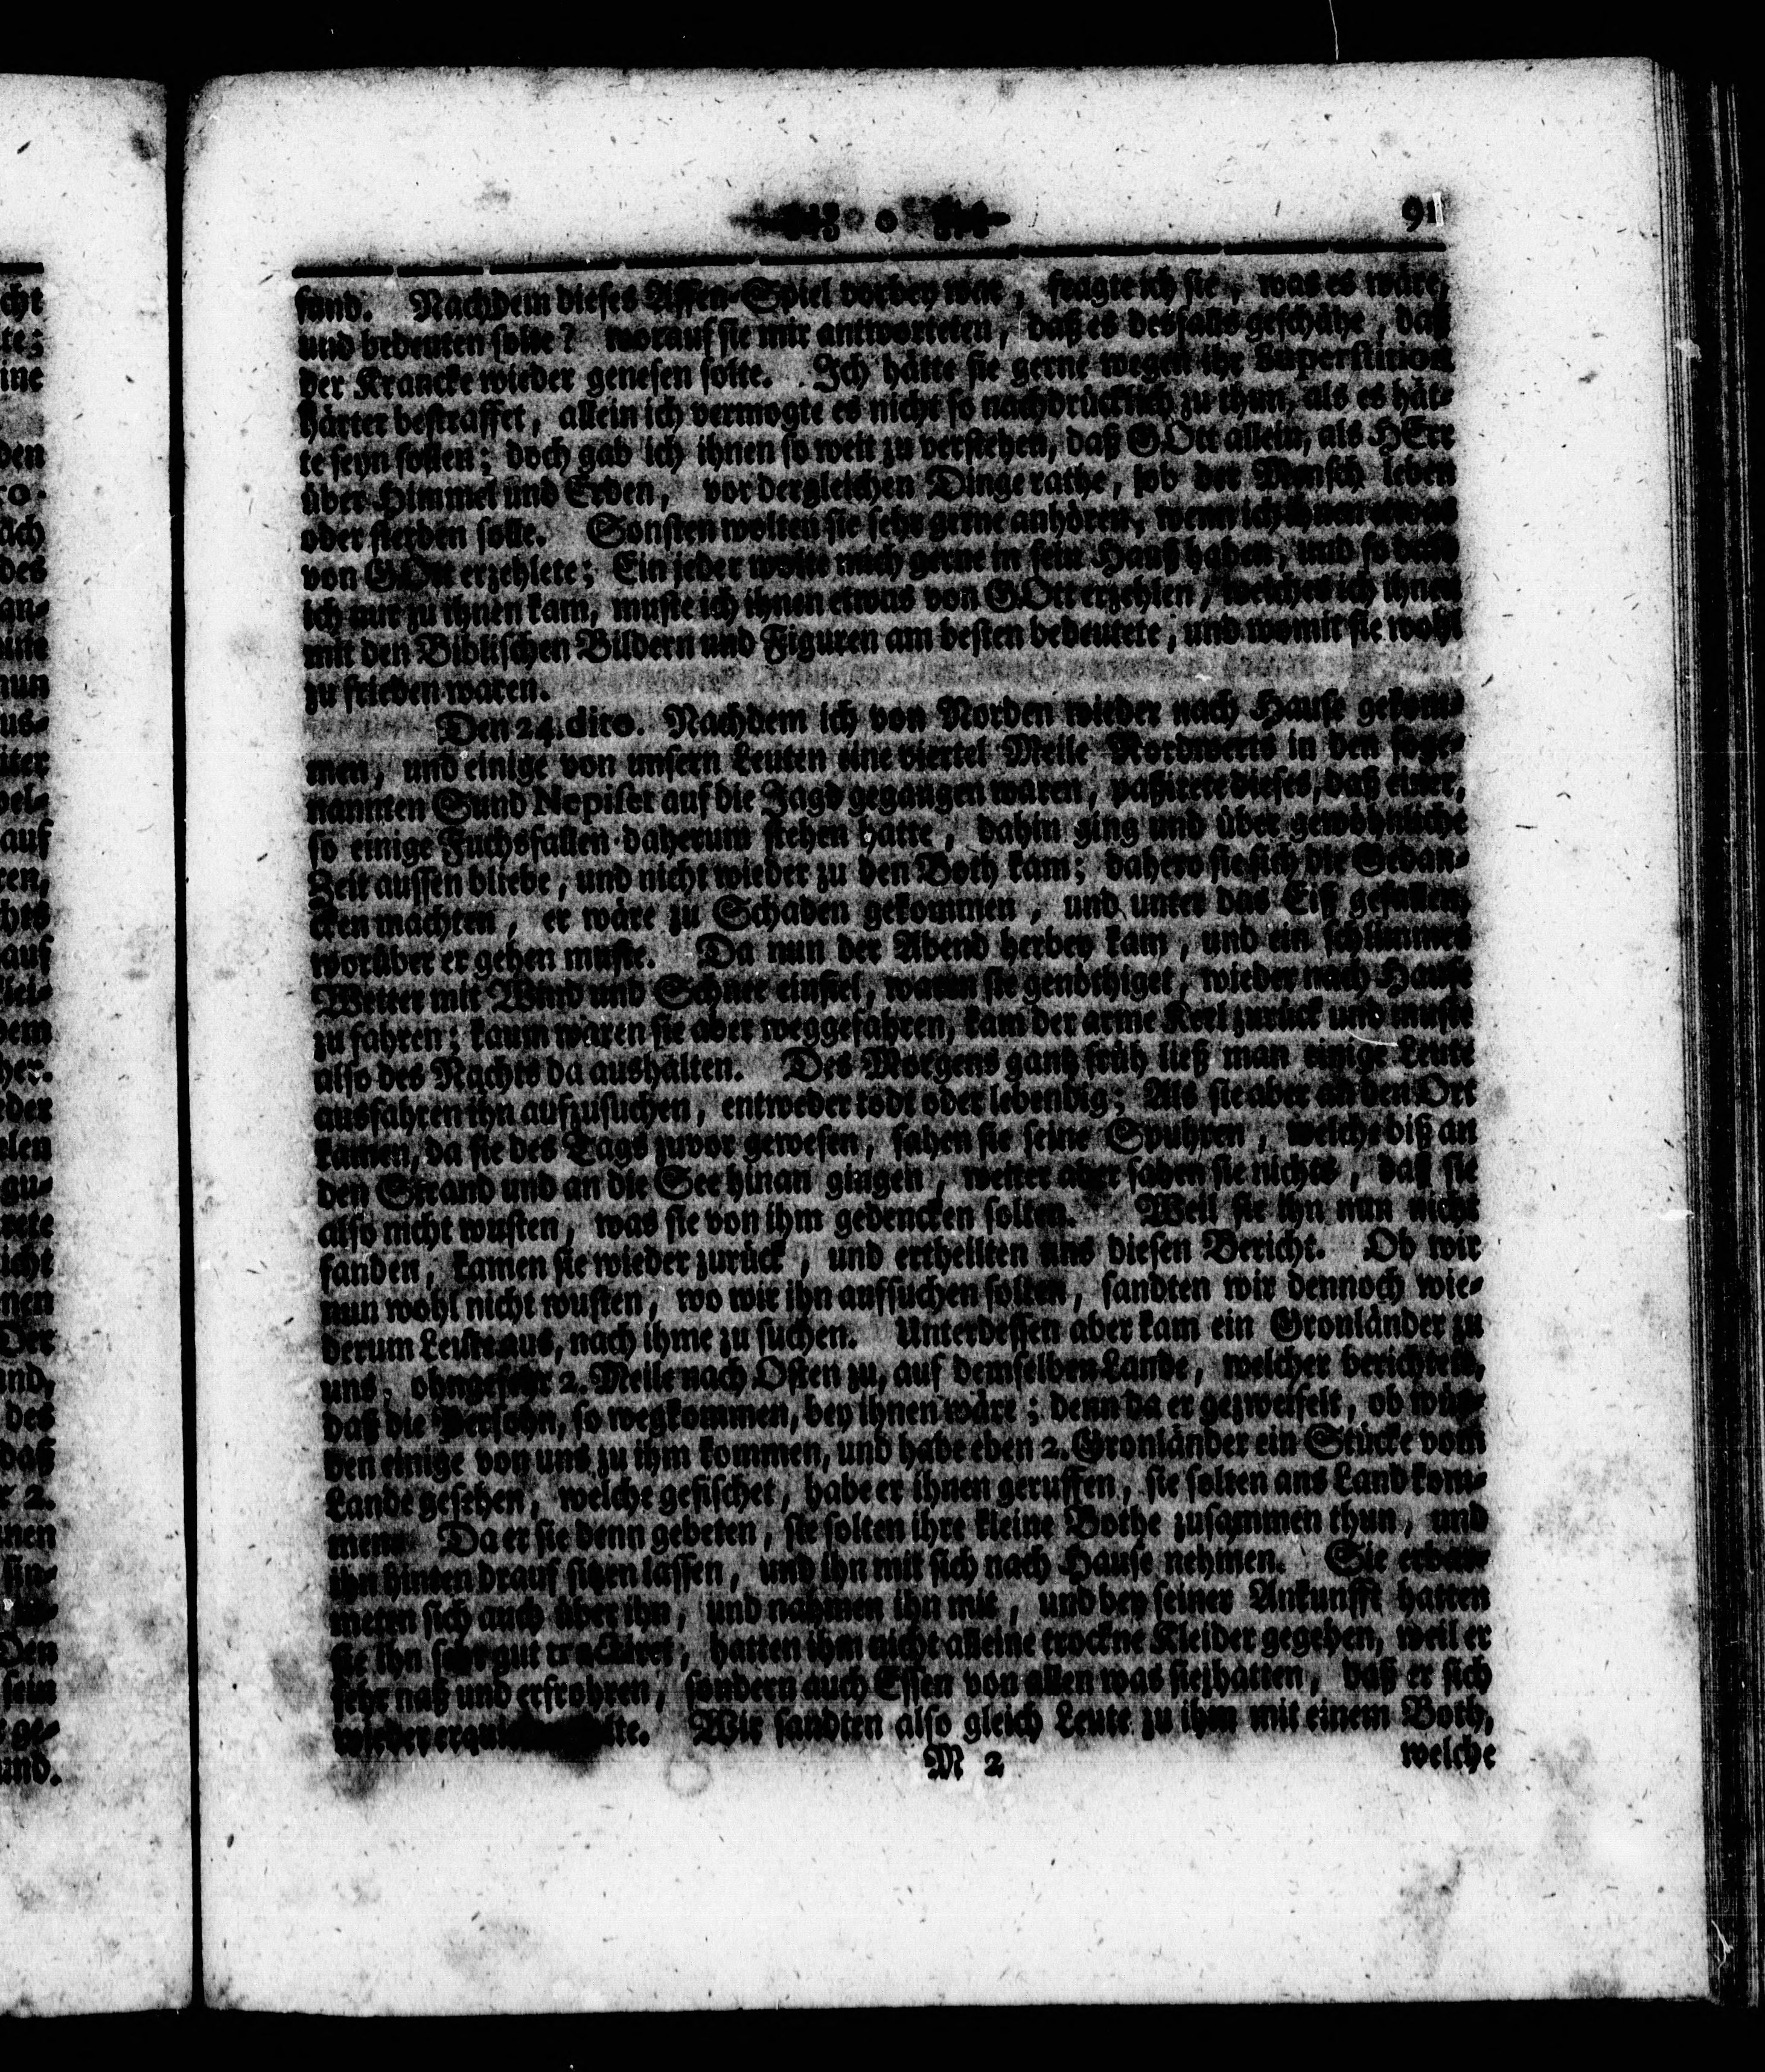 91
fund. Nachdem dieses Affen-Spiel vorbey war, fragte ich sie, was es wäre,
und bedeuten solte? worauf sie mir antworteten, daß es desfalls geschähe, daß
der Krancke wieder genesen solte. Ich hätte sie gerne wegen ihr Superstition
härter bestraffet, allein ich vermogte es nicht so nachdrücklich zu thun, als es hät-
te seyn sollen; doch gab ich ihnen so weit zu verstehen, daß GOtt allein, als HErr
über Himmel und Erden, vor dergleichen Dinge rathe, ob der Mensch leben
oder sterben solle. Sonsten wolten sie sehr gerne anhören, wenn ich ihnen etwas
von GOtt erzehlete; Ein jeder wolte mich gerne in sein Hauß haben, und so bald
ich nur zu ihnen kam, muste ich ihnen etwas von GOtt erzehlen, welches ich ihnen
mit den Biblischen Bildern und Figuren am besten bedeutete, und womit sie wohl
zu frieden waren.
Den 24. dito. Nachdem ich von Norden wieder nach Hause gekom-
men, und einige von unsern Leuten eine viertel Meile Nordwerts in den soge-
nannten Sund Nepiset auf die Jagd gegangen waren, paßirete dieses, daß einer,
so einige Fuchsfallen daherum stehen hatte, dahin ging und über gewöhnliche
Zeit aussen bliebe, und nicht wieder zu den Both kam; dahero sie sich die Gedan-
cken machten, er wäre zu Schaden gekommen, und unter das Eiß gefallen,
worüber er gehen muste. Da nun der Abend herbey kam, und ein schlimmes
Wetter mit Wind und Schnee einfiel, waren sie genöthiget, wieder nach Hause
zu fahren; kaum waren sie aber weggefahren, kam der arme Kerl zurück und muste
also des Nachts da aushalten. Des Morgens gantz früh ließ man einige Leute
ausfahren ihn aufzusuchen, entweder todt oder lebendig; Als sie aber an den Ort
kamen, da sie des Tags zuvor gewesen, sahen sie seine Spuhren, welche biß an
den Strand und an die See hinan gingen, weiter aber sahen sie nichts, daß sie
also nicht wusten, was sie von ihm gedencken solten. Weil sie ihn nun nicht
fanden, kamen sie wieder zurück, und ertheilten uns diesen Bericht. Ob wir
nun wohl nicht wusten, wo wir ihn aufsuchen solten, sandten wir dennoch wie-
derum Leute aus, nach ihme zu suchen. Unterdessen aber kam ein Gronländer zu
uns, ohngefehr 2. Meile nach Osten zu, auf demselben Lande, welcher berichtete,
daß die Persohn, so wegkommen, bey ihnen wäre; denn da er gezweifelt, ob wür-
den einige von uns zu ihm kommen, und habe eben 2. Gronländer ein Stücke vom
Lande gesehen, welche gefischet, habe er ihnen geruffen, sie solten ans Land kom-
men. Da er sie denn gebeten, sie solten ihre kleine Bothe zusammen thun, und
ihn hinten drauf sitzen lassen, und ihn mit sich nach Hause nehmen. Sie erbar-
meten sich auch über ihn, und nahmen ihn mit, und bey seiner Ankunfft hatten
sie ihn sehr gut tractiret, hatten ihm nicht alleine trockne Kleider gegeben, weil er
sehr naß und erfrohren, sondern auch Essen von allen was sie hatten, daß er sich
wieder Wir sandten also gleich Leute zu ihm mit einem Both,
M 2
welche